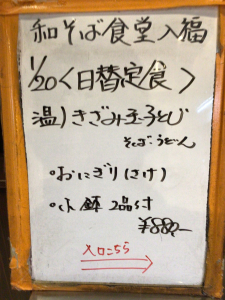 和そば食堂入福
1/20<日替定食>
温)きざみ玉子とじ
そば・うどん
・おにぎり(さけ)
・小鉢 2品付
¥880-
入口こちら